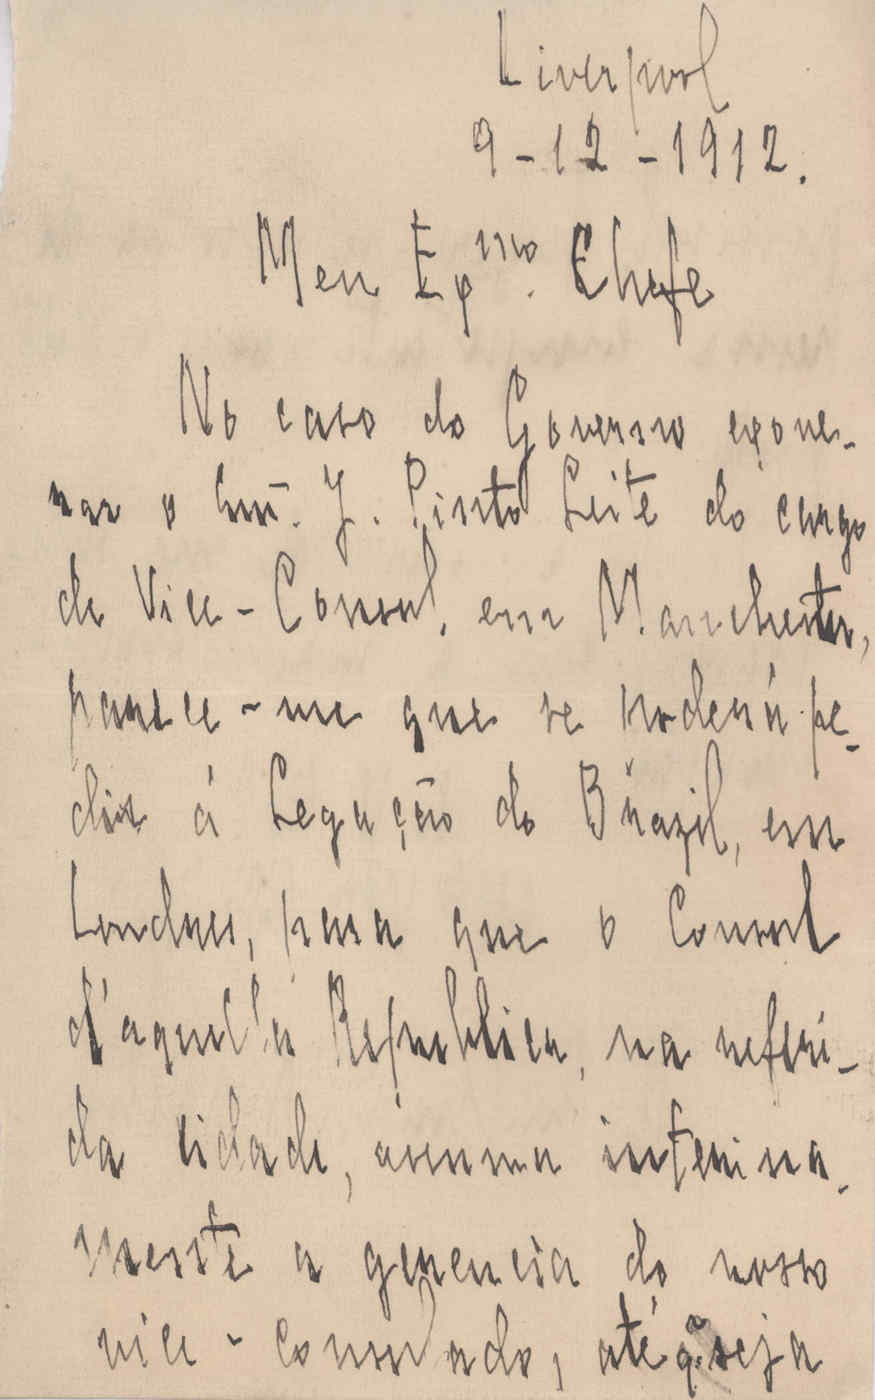 Liverpool
9-12-1912.
Meu Exmo. Chefe
No caso do Governo exone-
rar o J. Pinto Leite do cargo
de Vice-Consul, em Manchester,
parece-me que se poderá pe-
dir á Legação do Brazil, em
Londres, para que o Consul
d'aquella Republica, na referi-
da cidade, assuma interina-
mente a gerencia do nosso
vice-consulado, até q. seja